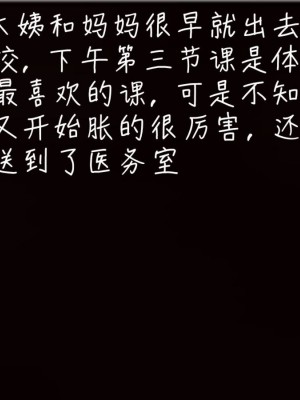 姨和妈妈很早就出去
校，下午第三节课是体
最喜欢的课，可是不知
又开始胀的很厉害，还
送到了医务室